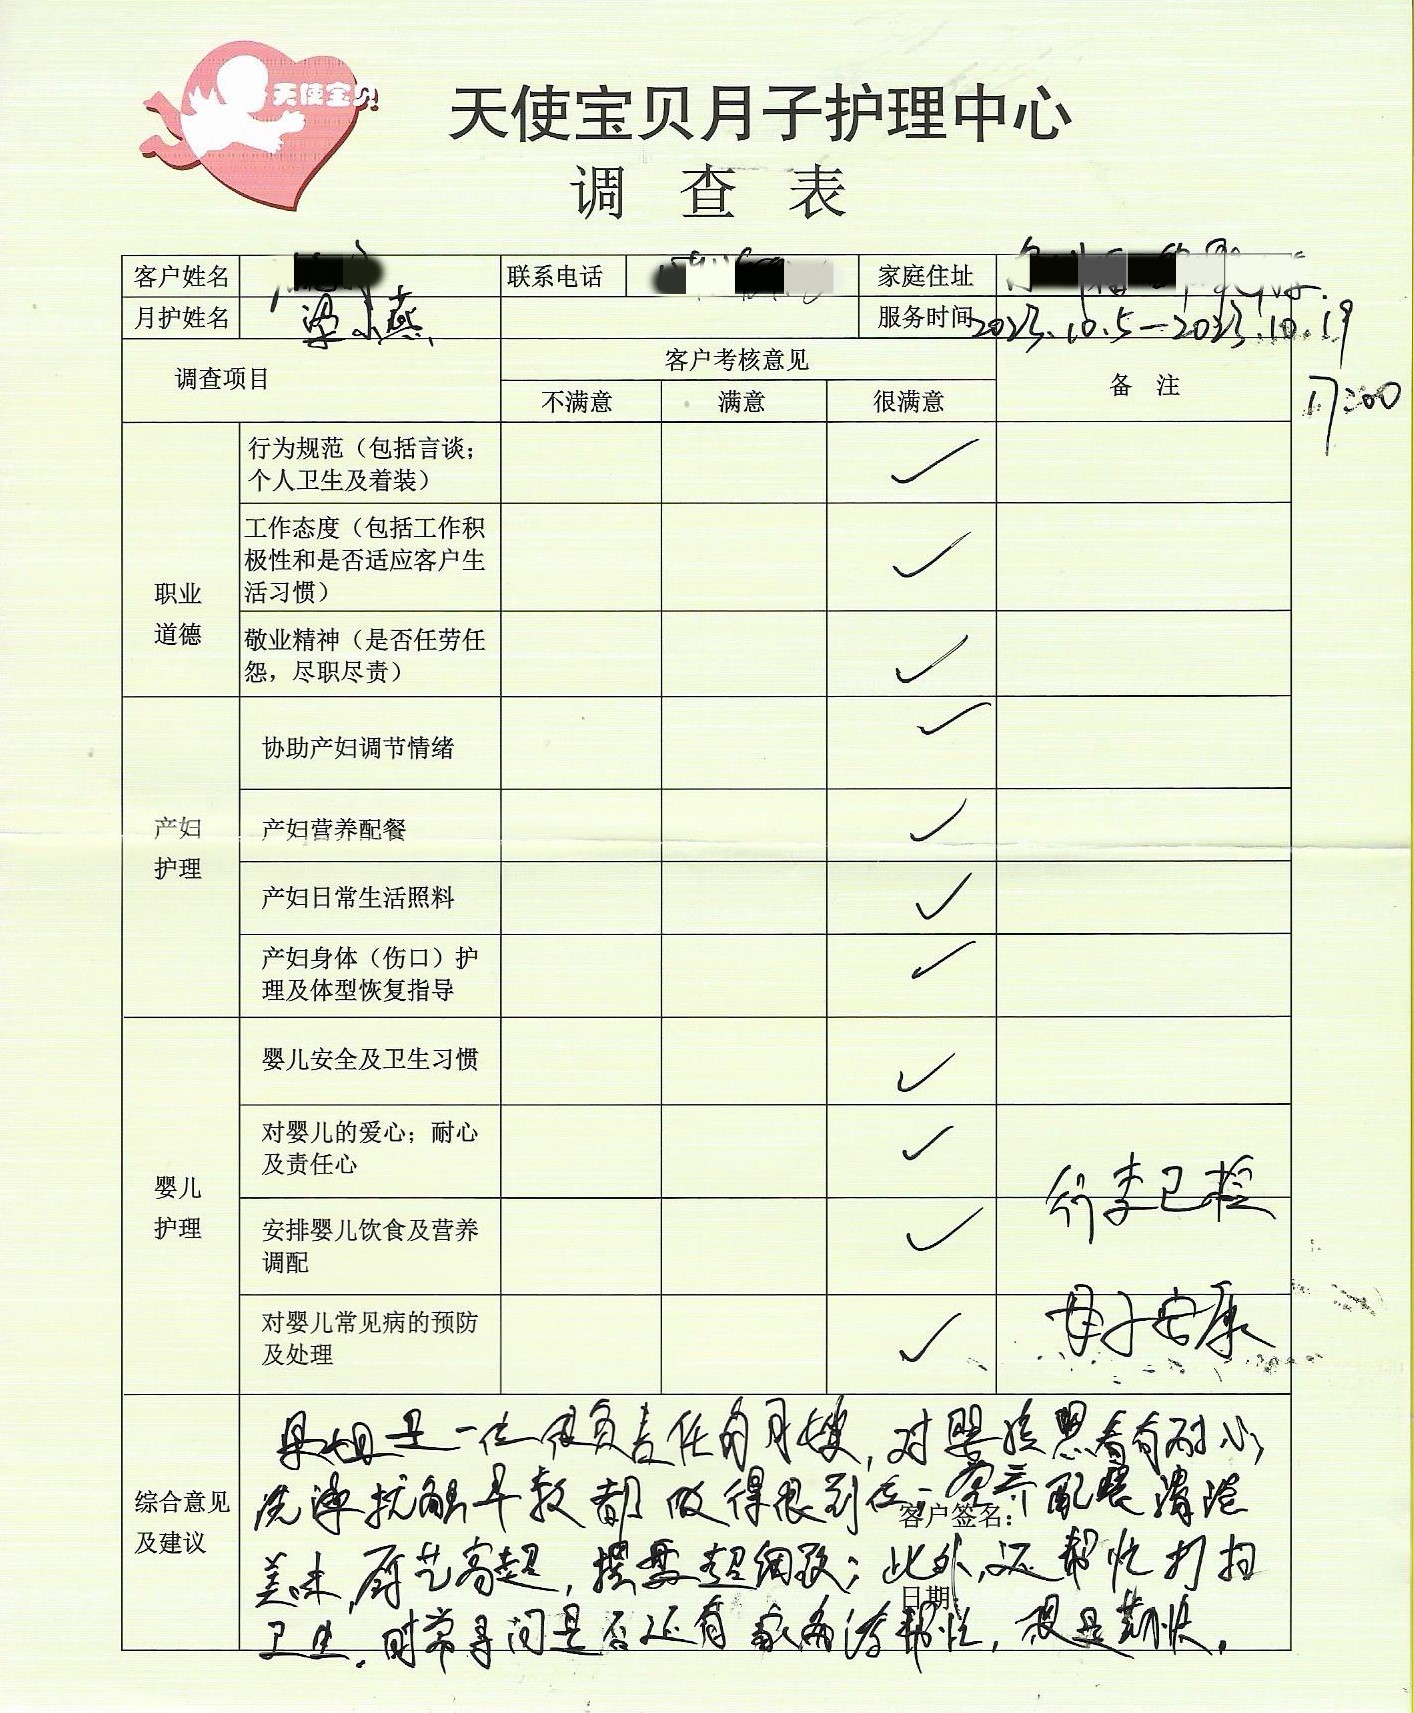 天使宝贝
天使宝贝月子护理中心
调 查 表
客户姓名 联系电话 家庭住址
月护姓名 梁小燕 服务时间 2023.10.5—2023.10.19
17:00
调查项目 客户考核意见 备 注
不满意 满意 很满意
职业
道德
行为规范（包括言谈；
个人卫生及着装）
工作态度（包括工作积
极性和是否适应客户生
活习惯）
敬业精神（是否任劳任
怨，尽职尽责）
产妇
护理
协助产妇调节情绪
产妇营养配餐
产妇日常生活照料
产妇身体（伤口）护
理及体型恢复指导
婴儿
护理
婴儿安全及卫生习惯
对婴儿的爱心；耐心
及责任心
安排婴儿饮食及营养
调配
对婴儿常见病的预防
及处理
行李已检
母子安康
综合意见
及建议
是一位很负责任的月嫂，对婴孩照看有耐心
洗澡抚触早教都做得很到位；营养配餐清淡
美味，厨艺高超，摆盘超细致；此外，还帮忙打扫
卫生，时常寻问是否还有家务活帮忙，很是勤快。
客户签名：
日期：